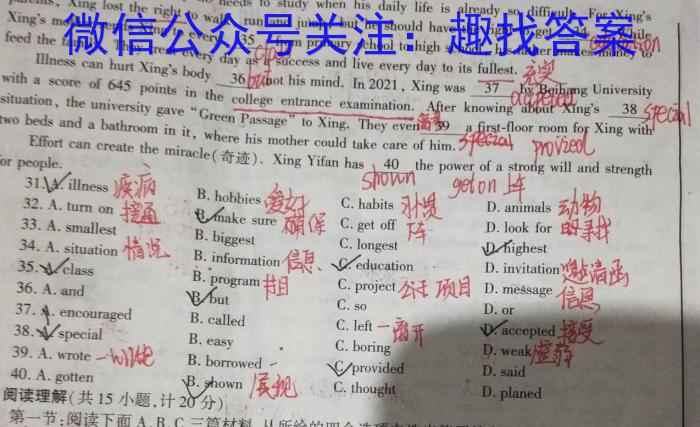 parents, Xing lost the right to walk, run and jump, but he should have
needs to study when his daily life is already so difficult. For Xing's
微信公众号关注：趣找答案
Illness can hurt Xing's body 36 but not his mind. In 2021, Xing was 37 by Beihang University
with a score of 645 points in the college entrance examination. After knowing about Xing's 38 special
situation, the university gave "Green Passage" to Xing. They even 39 a first-floor room for Xing with
two beds and a bathroom in it, where his mother could take care of him. special provized
Effort can create the miracle(奇迹). Xing Yifan has 40 the power of a strong will and strength
or people. shown get on 上车
31. A. illness 疾病 B. hobbies 爱好 C. habits 习惯 D. animals 动物
32. A. turn on 接通 B. make sure 确保 C. get off 下车 D. look for 的寻找
33. A. smallest B. biggest C. longest D. highest
34. A. situation 情况 B. information 信息 C. education D. invitation 邀请函
35. A. class B. program 节目 C. project 项目 D. message 信息
36. A. and B. but C. so D. or
37. A. encouraged B. called C. left 离开 D. accepted 接受
38. A. special B. easy C. boring D. weak 虚弱
39. A. wrote B. borrowed C. provided D. said
40. A. gotten B. shown 展现 C. thought D. planed
阅读理解(共15小题,计20分)
第一节:阅读下面A、B、C三篇材料,从所给的四个选项中